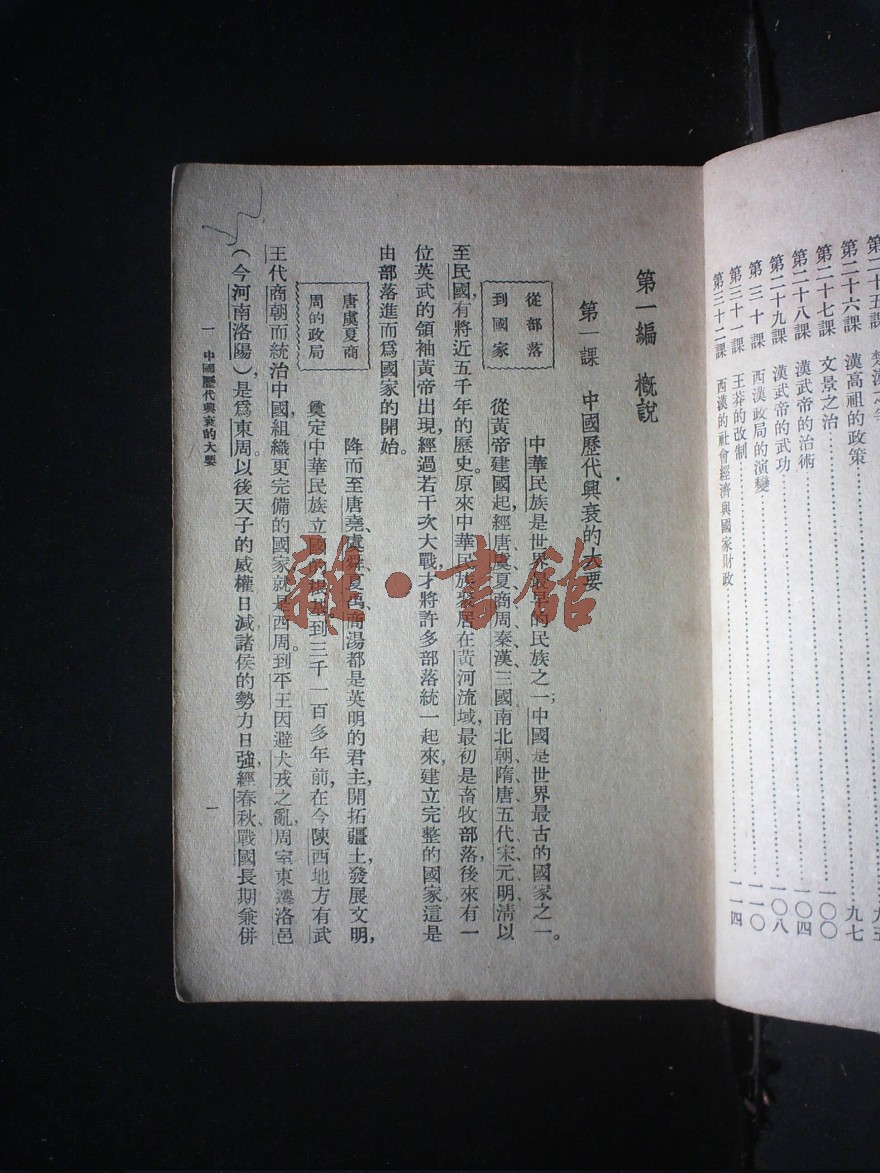 第二十六課　漢高祖的政策⋯⋯九七
第二十七課　文景之治⋯⋯一〇〇
第二十八課　漢武帝的治術⋯⋯一〇四
第二十九課　漢武帝的武功⋯⋯一〇八
第三十課　西漢政局的演變⋯⋯一一〇
第三十一課　王莽的改制⋯⋯一一四
第三十二課　西漢的社會經濟與國家財政
第一編　概說
第一課　中國歷代興衰的大要
從部落
到國家
中華民族是世界最古的民族之一；中國是世界最古的國家之一。
從黃帝建國起經唐、虞、夏、商、周、秦、漢、三國、南北朝、隋、唐、五代、宋、元、明、清以
至民國，有將近五千年的歷史。原來中華民族聚居在黃河流域，最初是畜牧部落，後來有一
位英武的領袖黃帝出現，經過若干次大戰，才將許多部落統一起來，建立完整的國家，這是
由部落進而爲國家的開始。
唐虞夏商
周的政局
降而至唐堯、虞舜、夏禹、商湯都是英明的君主，開拓疆土，發展文明，
奠定中華民族立國的根基。到三千一百多年前，在今陝西地方有武
王代商朝而統治中國，組織更完備的國家，就是西周。到平王因避犬戎之亂，周室東遷洛邑
（今河南洛陽），是爲東周。以後天子的威權日減，諸侯的勢力日強，經春秋、戰國長期兼併
一　中國歷代興衰的大要
一
雜·書館